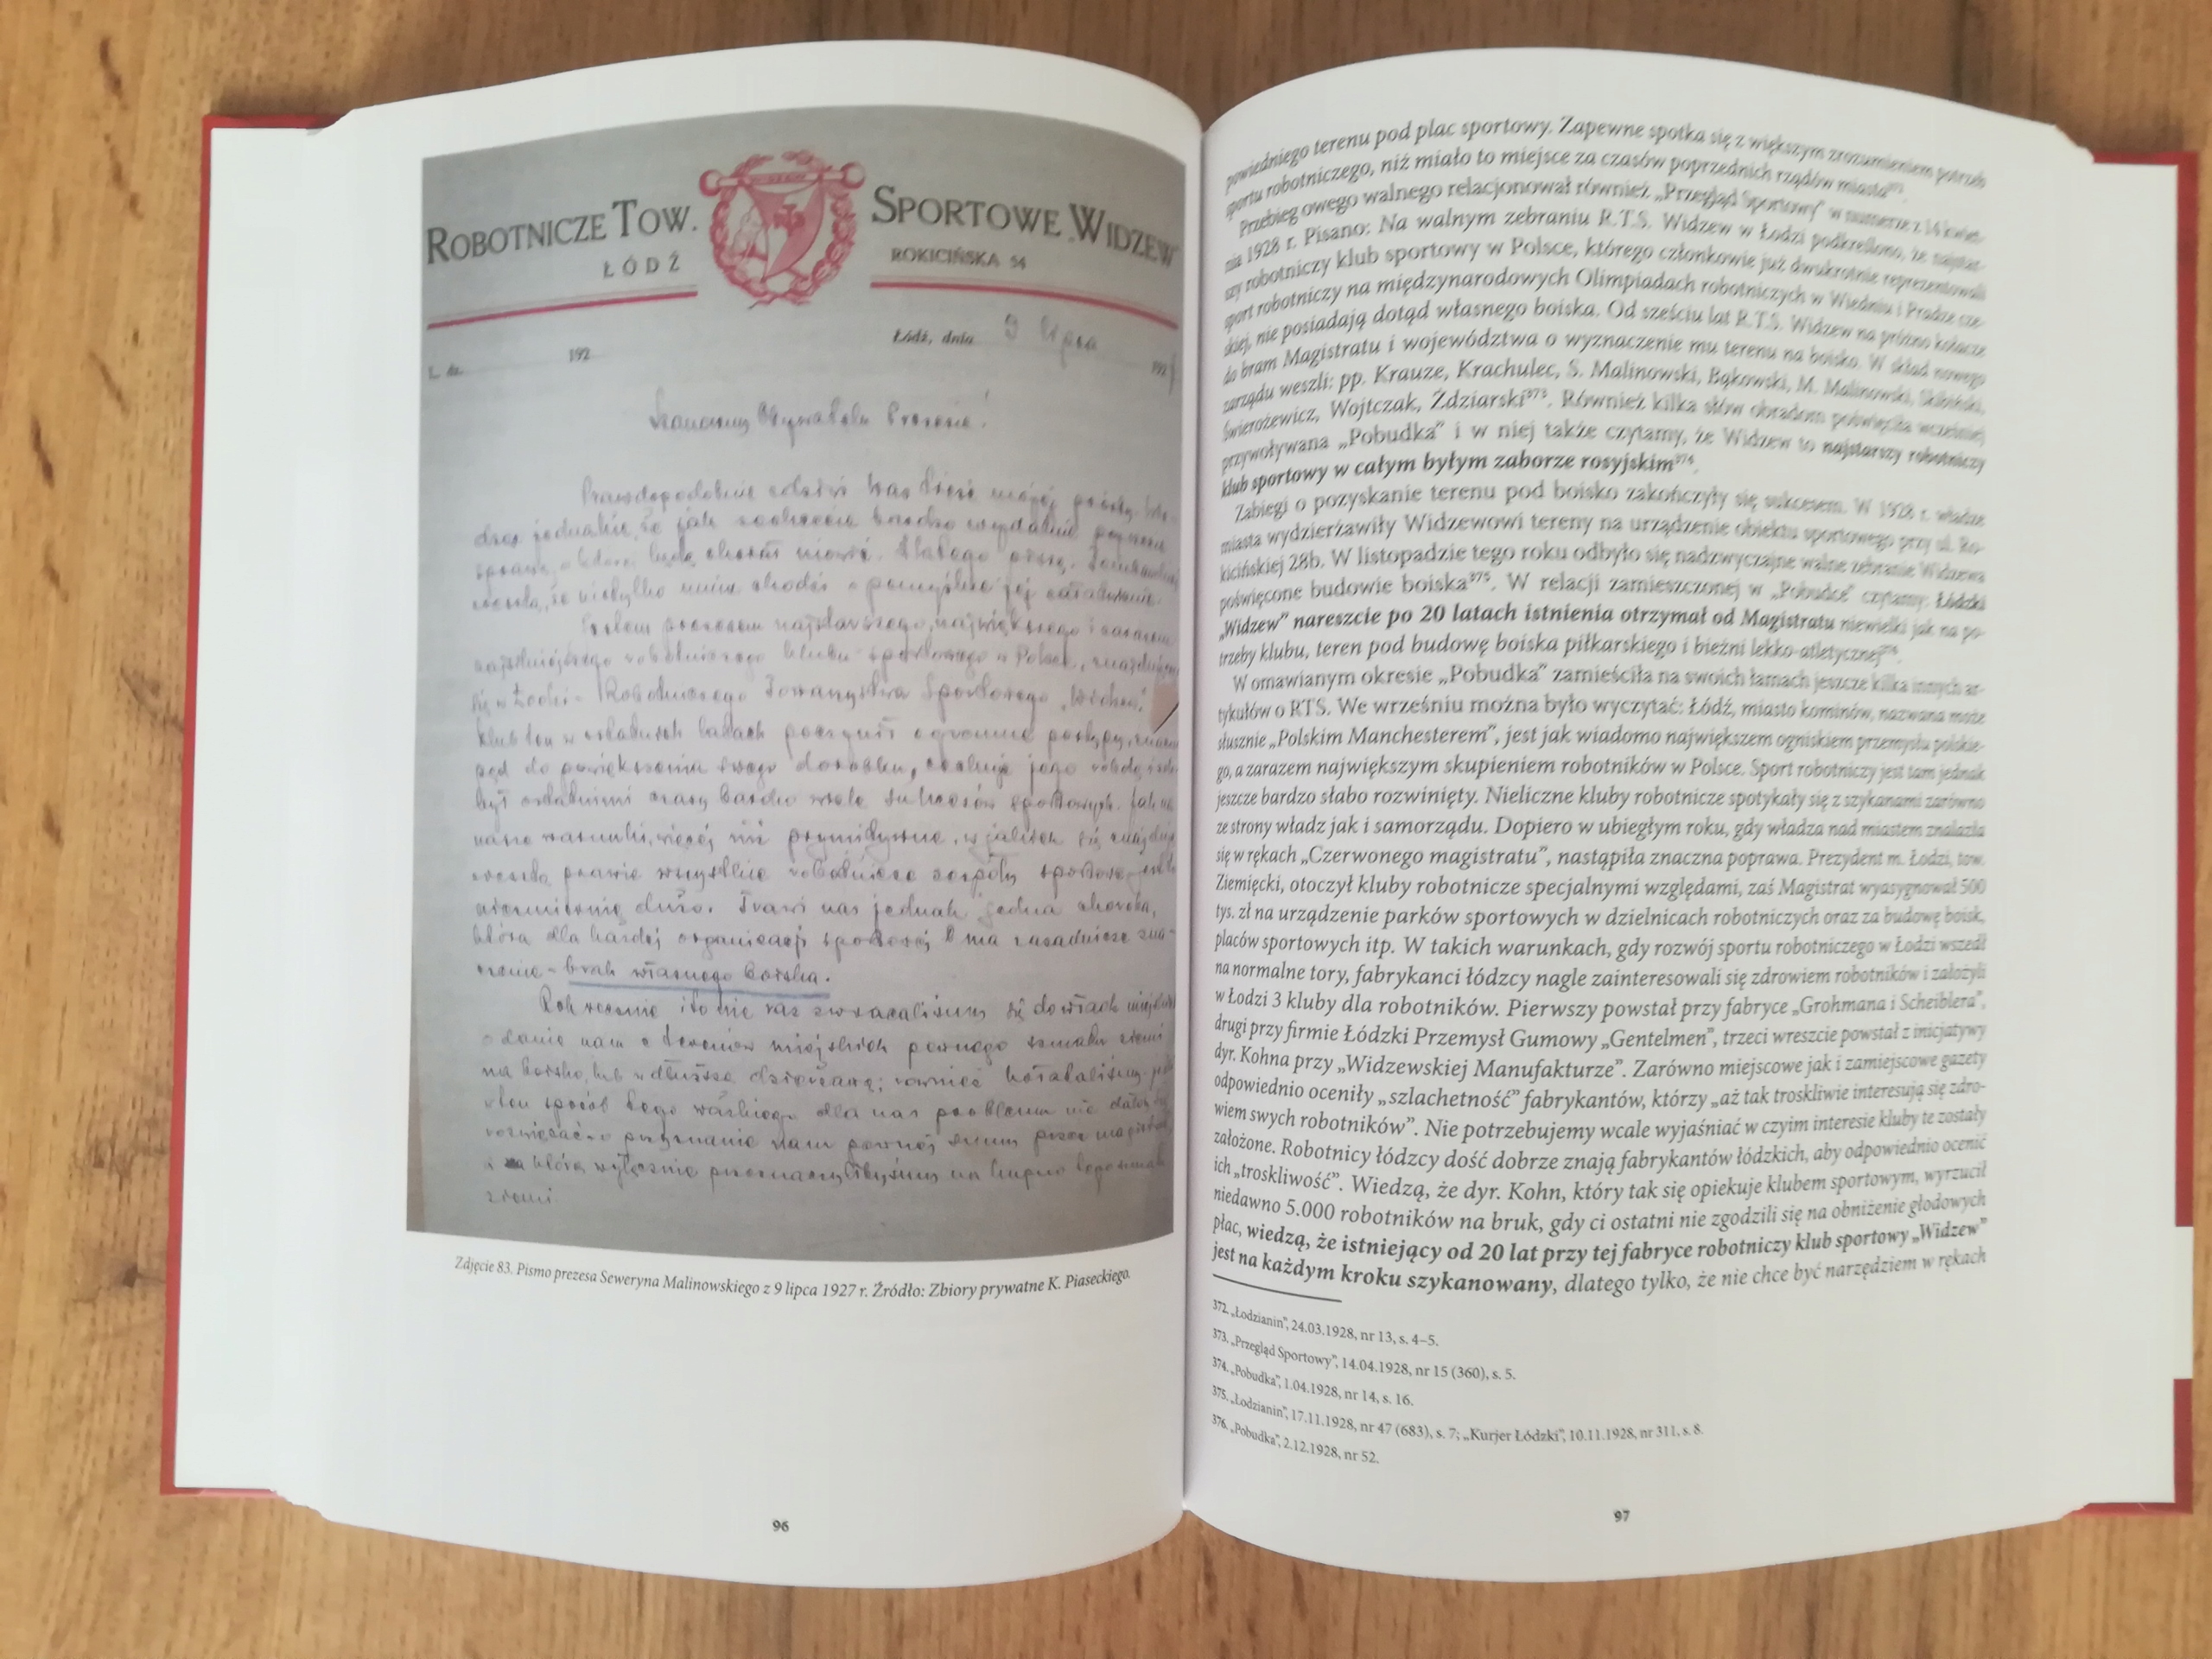 ROBOTNICZE TOW. SPORTOWE „WIDZEW"
ŁÓDŹ ROKICIŃSKA 54
Łódź, dnia 9 lipca 192
L. dz. 192
Szanowny Obywatelu Prezesie!
Prawdopodobnie zdziwi Was treść mojej prośby.
jednakże, że jak zechcecie bardzo wydatnie
sprawę, o którą będę chciał mówić. Dlatego proszę.
że nietylko mnie chodzi o pomyślne jej załatwienie.
Jestem prezesem najstarszego, największego i zarazem
najsilniejszego robotniczego klubu sportowego w Polsce,
się w Łodzi - Robotniczego Towarzystwa Sportowego „Widzew".
klub ten w ostatnich latach poczynił ogromne postępy,
pęd do powiększenia swego dorobku, jego
był ostatnimi czasy bardzo wiele sukcesów sportowych. Jak na
nasze warunki, więcej niż prymitywne, w jakich się
zresztą prawie wszystkie robotnicze zespoły sportowe
niezmiernie dużo. Trawi nas jednak jedna choroba,
która dla każdej organizacji sportowej ma zasadnicze zna-
czenie - brak własnego boiska.
Rok rocznie i to nie raz zwracaliśmy się do władz
o danie nam z terenów miejskich pewnego szmatu ziemi
na boisko, lub w dłuższą dzierżawę; również kołataliśmy
sposób tego ważkiego dla nas problemu nie
rozwiązać - o przyznanie nam pewnej sumy przez
i za którą wyłącznie przeznaczylibyśmy na kupno
ziemi.
Zdjęcie 83. Pismo prezesa Seweryna Malinowskiego z 9 lipca 1927 r. Źródło: Zbiory prywatne K. Piaseckiego.
96
powiedniego terenu pod plac sportowy. Zapewne spotka się z większym zrozumieniem potrzeb
sportu robotniczego, niż miało to miejsce za czasów poprzednich rządów miasta³⁷².
Przebieg owego walnego relacjonował również „Przegląd Sportowy" w numerze z 14 kwiet-
nia 1928 r. Pisano: Na walnym zebraniu R.T.S. Widzew w Łodzi podkreślono, że najstar-
szy robotniczy klub sportowy w Polsce, którego członkowie już dwukrotnie reprezentowali
sport robotniczy na międzynarodowych Olimpiadach robotniczych w Wiedniu i Pradze cze-
skiej, nie posiadają dotąd własnego boiska. Od sześciu lat R.T.S. Widzew na próżno kołacze
do bram Magistratu i województwa o wyznaczenie mu terenu na boisko. W skład nowego
zarządu weszli: pp. Krauze, Krachulec, S. Malinowski, Bąkowski, M. Malinowski,
Świerożewicz, Wojtczak, Zdziarski³⁷³. Również kilka słów obradom poświęciła wcześniej
przywoływana „Pobudka" i w niej także czytamy, że Widzew to najstarszy robotniczy
klub sportowy w całym byłym zaborze rosyjskim³⁷⁴.
Zabiegi o pozyskanie terenu pod boisko zakończyły się sukcesem. W 1928 r. władze
miasta wydzierżawiły Widzewowi tereny na urządzenie obiektu sportowego przy ul. Ro-
kicińskiej 28b. W listopadzie tego roku odbyło się nadzwyczajne walne zebranie Widzewa
poświęcone budowie boiska³⁷⁵. W relacji zamieszczonej w „Pobudce" czytamy: Łódzki
„Widzew" nareszcie po 20 latach istnienia otrzymał od Magistratu niewielki jak na po-
trzeby klubu, teren pod budowę boiska piłkarskiego i bieżni lekko-atletycznej³⁷⁶.
W omawianym okresie „Pobudka" zamieściła na swoich łamach jeszcze kilka innych ar-
tykułów o RTS. We wrześniu można było wyczytać: Łódź, miasto kominów, nazwana może
słusznie „Polskim Manchesterem", jest jak wiadomo największem ogniskiem przemysłu polskie-
go, a zarazem największym skupieniem robotników w Polsce. Sport robotniczy jest tam jednak
jeszcze bardzo słabo rozwinięty. Nieliczne kluby robotnicze spotykały się z szykanami zarówno
ze strony władz jak i samorządu. Dopiero w ubiegłym roku, gdy władza nad miastem znalazła
się w rękach „Czerwonego magistratu", nastąpiła znaczna poprawa. Prezydent m. Łodzi, tow.
Ziemięcki, otoczył kluby robotnicze specjalnymi względami, zaś Magistrat wyasygnował 500
tys. zł na urządzenie parków sportowych w dzielnicach robotniczych oraz za budowę boisk,
placów sportowych itp. W takich warunkach, gdy rozwój sportu robotniczego w Łodzi wszedł
na normalne tory, fabrykanci łódzcy nagle zainteresowali się zdrowiem robotników i założyli
w Łodzi 3 kluby dla robotników. Pierwszy powstał przy fabryce „Grohmana i Scheiblera",
drugi przy firmie Łódzki Przemysł Gumowy „Gentelmen", trzeci wreszcie powstał z inicjatywy
dyr. Kohna przy „Widzewskiej Manufakturze". Zarówno miejscowe jak i zamiejscowe gazety
odpowiednio oceniły „szlachetność" fabrykantów, którzy „aż tak troskliwie interesują się zdro-
wiem swych robotników". Nie potrzebujemy wcale wyjaśniać w czyim interesie kluby te zostały
założone. Robotnicy łódzcy dość dobrze znają fabrykantów łódzkich, aby odpowiednio ocenić
ich „troskliwość". Wiedzą, że dyr. Kohn, który tak się opiekuje klubem sportowym, wyrzucił
niedawno 5.000 robotników na bruk, gdy ci ostatni nie zgodzili się na obniżenie głodowych
płac, wiedzą, że istniejący od 20 lat przy tej fabryce robotniczy klub sportowy „Widzew"
jest na każdym kroku szykanowany, dlatego tylko, że nie chce być narzędziem w rękach
372. „Łodzianin", 24.03.1928, nr 13, s. 4–5.
373. „Przegląd Sportowy", 14.04.1928, nr 15 (360), s. 5.
374. „Pobudka", 1.04.1928, nr 14, s. 16.
375. „Łodzianin", 17.11.1928, nr 47 (683), s. 7; „Kurjer Łódzki", 10.11.1928, nr 311, s. 8.
376. „Pobudka", 2.12.1928, nr 52.
97